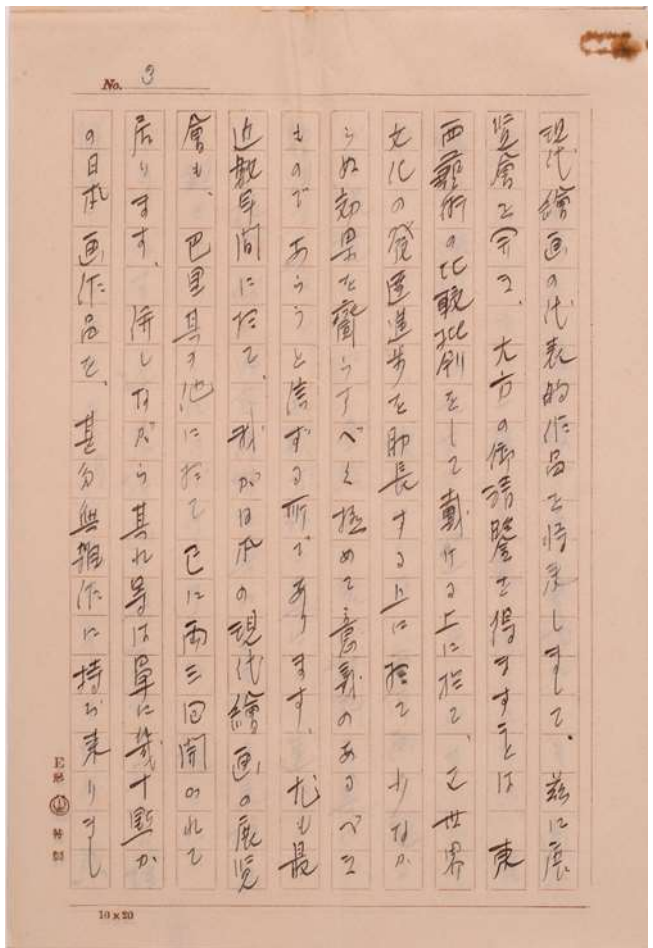 No. 3
現代繪画の代表的作品を將来しまして、茲に展
覧會を開き、大方の御清鑒を得ますことは 東
西藝術の比較批判をして戴ける上に於て、又世界
文化の発達進歩を助長する上に於て 少なか
らぬ効果を齎らすべく極めて意義のあるべき
ものであらうと信ずる所であります。尤も最
近数年間に於て、我が日本の現代繪画の展覧
會も、巴里其の他に於て已に両三回開かれて
居ります。併しながら其れ等は単に幾十點か
の日本画作品を、甚分無雑作に持ち来りまし
10×20